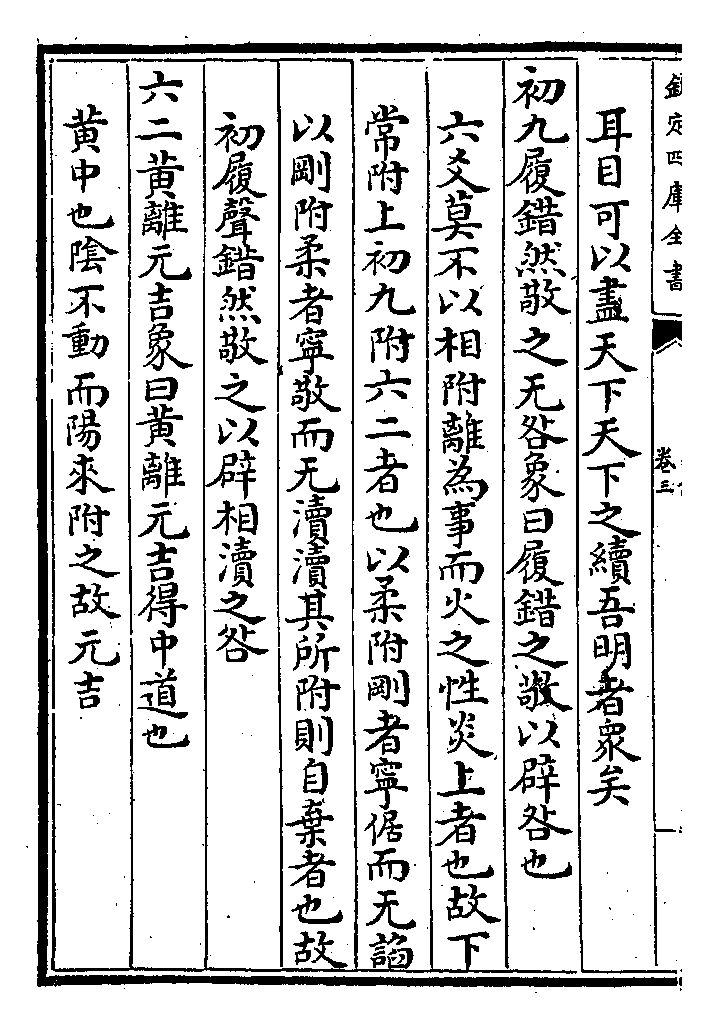 欽定四庫全書
卷三
耳目可以盡天下天下之續吾明者衆矣
初九履錯然敬之无咎象曰履錯之敬以辟咎也
六爻莫不以相附離為事而火之性炎上者也故下
常附上初九附六二者也以柔附剛者寧倨而无諂
以剛附柔者寧敬而无瀆瀆其所附則自棄者也故
初履聲錯然敬之以辟相瀆之咎
六二黄離元吉象曰黄離元吉得中道也
黄中也陰不動而陽來附之故元吉